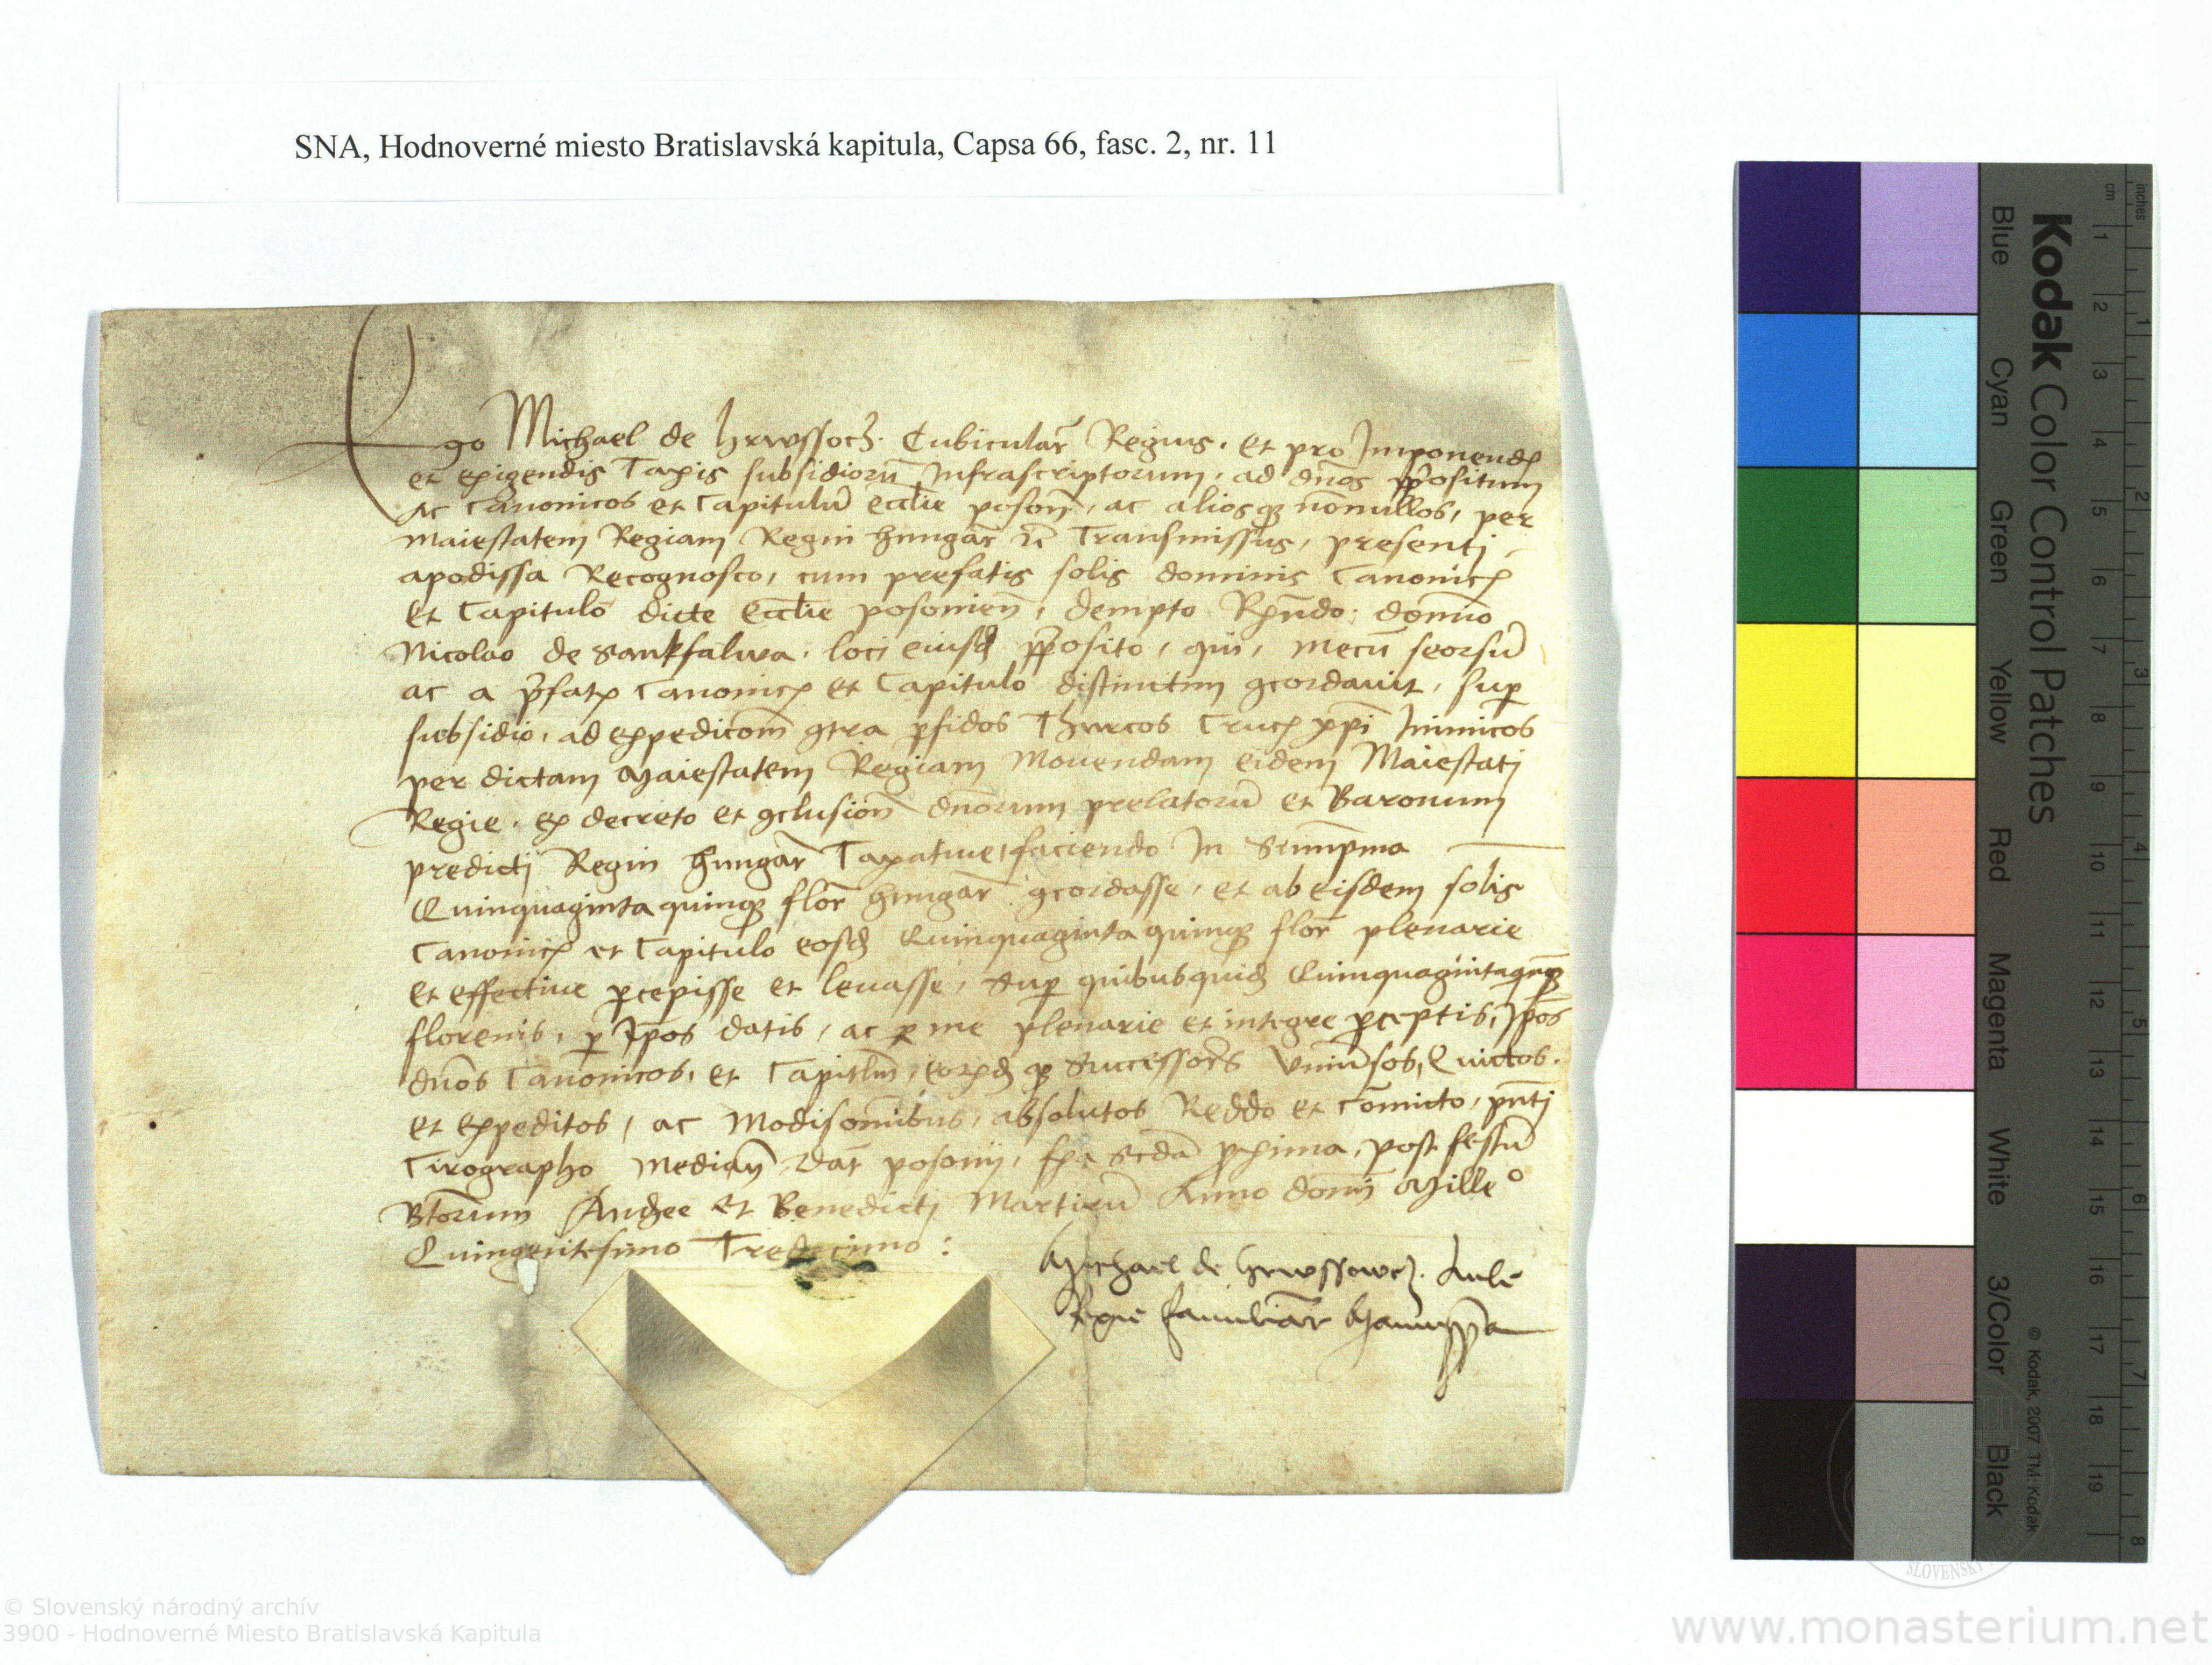 SNA, Hodnoverné miesto Bratislavská kapitula, Capsa 66, fasc. 2, nr. 11
Ego Michael de hrwssocz. Cubicular̄ Regius. et pro Imponendꝭ
et exigendis Taxis subsidiorū Infrascriptorum, ad dn̄os p̄positum
ac Canonicos et Capitulū eccl̄ie poson̄, ac aliosqꝫ nōnullos, per
Maiestatem Regiam Regni hungar̄ Transmissus, presentj
apodissa Recognosco, cum prefatis solis dominis Canonicꝭ
et Capitulo dicte Eccl̄ie posonien̄, dempto Rn̄do: domīno
Nicolao de Sankfalwa. loci eiusđ p̄posito, qui, mecū seorsū
ac a p̄fatꝭ Canonicꝭ et Capitulo distinctim ꝯcordauit, suꝑ
subsidio, ad expedicōm ꝯtra ꝑfidos Thurcos Crucꝭ xp̄i Inimicos
per dictam Maiestatem Regiam Mouendam eidem Maiestatj
Regie. ex decreto et ꝯclusion̄ dn̄orum prelatorū et Baronum
predictj Regni hungar̄ Taxatiue, faciendo In
Quinquaginta quinqꝫ flor̄ hungar̄ ꝯcordasse, et ab eisdem solis
Canonicꝭ et Capitulo eosđ Quinquaginta quinqꝫ flor̄ plenarie
et effectiue ꝑcepisse et leuasse, Suꝑ quibusquiđ Quinquaginta
florenis, ꝑ Ip̄os datis, ac ꝑ me plenarie et integre ꝑceptis, Ip̄os
dn̄os Canonicos, et Capitl̄m, Successor̄s Vniu̇sos, Quictos.
et expeditos, ac Modisom̄ibus, absolutos Reddo et com̄icto, pn̄tj
Cirographo Median̄ Dat̄ posonij, scđa proxima, post festū
Btōrum Andree et Benedictj Martirū Anno domī Mille͞o
Quingentesimo Tredecimo:
Michael de hrwssowcz. Aule
Regie familiar̄ Manupp̄a
Kodak Color Control Patches
Blue
Cyan
Green
Yellow
Red
Magenta
White
3/Color
Black
© Kodak, 2007 TM: Kodak
cm 1 2 3 4 5 6 7 8 9 10 11 12 13 14 15 16 17 18 19
inches 1 2 3 4 5 6 7 8
SLOVENSKÝ
© Slovenský národný archív
3900 - Hodnoverné Miesto Bratislavská Kapitula
www.monasterium.net